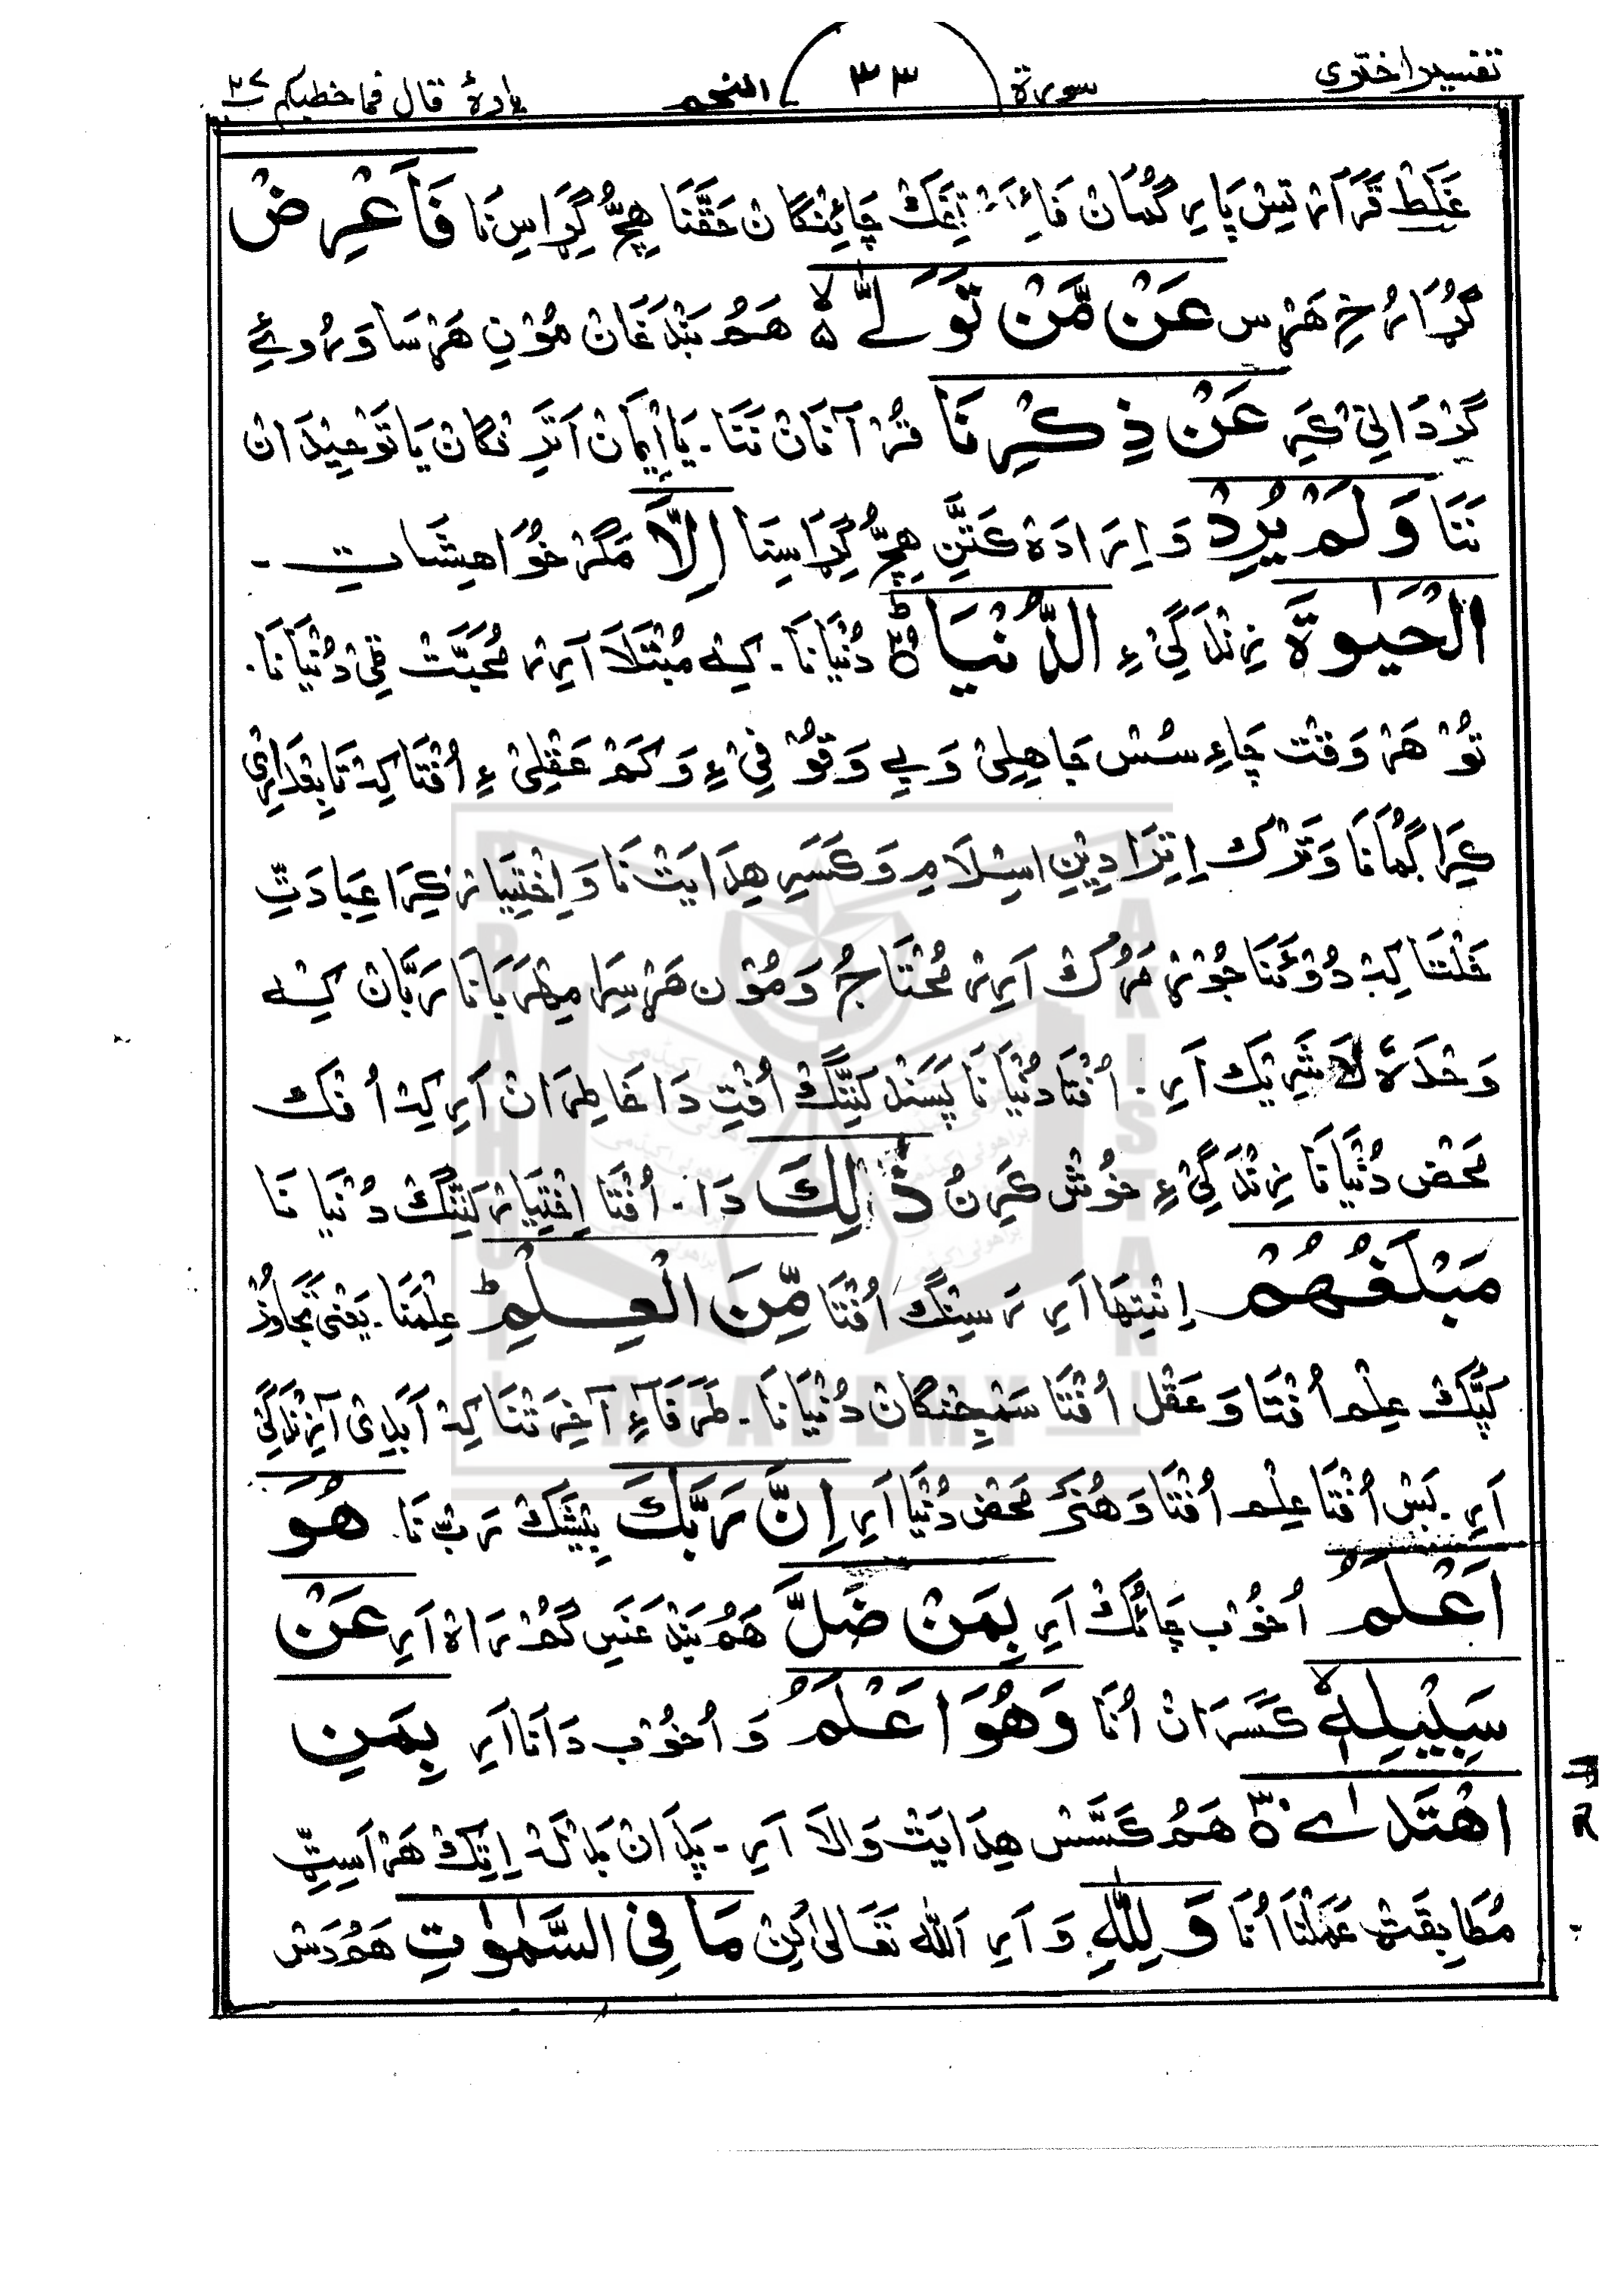 تفسیر اختری سورة ۳۳ النجم پارهٔ قال فما خطبکم ۲۷
غَلَطْ قَرَارْ تِسْ پَارِ گُمَانْ فَائِدَہْ تِفَکْ چَائِنْگَانْ حَقَّنَا هِچُّ گِڑَاسِ نَا فَاَعْرِضْ
گڑا رُخِ هَرْس عَنْ مَّنْ تَوَلّٰے ۵ هَمُ بَنْدَغَانْ مُوْنِ هَرْسَا وَرُوئے
گَرْدَانِیْ کَرِ عَنْ ذِكْرِنَا قُرْآنَانْ نَنَا۔ یَا اِیْمَانْ اَتَرِنْگانْ یَا تَوْحِیْدَانْ
نَنَا وَلَمْ یُرِدْ وَ اِرَادَہ کَتَنِ هِچُّ گِڑَاسِنَا اِلَّا مَگَرْ خُوَاهِشَاتِ۔
الْحَیٰوةَ زِنْدَگِیْ ءِ الدُّنْیَا دُنْیَانَا۔ کِہ مُبْتَلَا اَرِرْ مُحَبَّتْ قِیْ دُنْیَانَا۔
تُوْ هَرْ وَقْت چَاءِ سُسْ جَاهِلِیْ وَ بے وَقُوْفِیْ ءِ وَ کَمْ عَقْلِیْ ءِ اُفْتَا کِہْ تَابِعْدَارِیْ
کِرَا گُمَانَا وَ تَرْک اِتِرَا دِیْنِ اِسْلَامِ وَ کَسَرِ هِدَایَتْ نَا وَ اِخْتِیَارْ کِرَا عِبَادَتِ
خَلْتَا کِہْ دُوْغَنَا جُوْڑ مَرُکْ اَرِرْ مُحْتَاجُ وَ مُوْن هَرْسِرَا مِهْرَبَانَا رَبَّانْ کِہ
وَحْدَهٗ لَا شَرِیْک اَرِ۔ اُفْتَا دُنْیَا نَا پَسَنْد کَنِنْگْ اُفْتِ دَا خَاطِرَانْ اَرِ کِہْ اُفْک
مَحْض دُنْیَا نَا زِنْدَگِیْ ءِ خُوْش کَرِنُ ذٰلِكَ دَا۔ اُفْتَا اِخْتِیَارْ کَنِنْگْ دُنْیَا نَا
مَبْلَغُهُمْ اِنْتِهَا اَرِ رَسِنْگْ اُفْتَا مِّنَ الْعِلْمِ ؕ عِلْمَنَا۔ یَعْنِیْ تَجَاوُزْ
کَپَّکْ عِلْم اُفْتَا وَ عَقْل اُفْتَا سَمْجِنْگانْ دُنْیَانَا۔ طَرَفَاءِ آخِرَتْنَا کِہْ اَبَدِیْ آ زِنْدَگِیْ
اَرِ۔ بَسْ اُفْتَا عِلْم اُفْتَا وَ هُنَرْ مَحْض دُنْیَا اَرِ اِنَّ رَبَّكَ بِیْشَکْ رَبّ نَا۔ هُوَ
اَعْلَمُ اُ خُوْب چَائِکْ اَرِ بِمَنْ ضَلَّ هَمُ بَنْدَغَنِی گُمْ رَاہْ اَرِ عَنْ
سَبِیْلِهٖ ۙ کَسَرَانْ اُنَا وَهُوَ اَعْلَمُ وَ اُ خُوْب دَانَا اَرِ بِمَنِ
اهْتَدٰے ۝۳۰ هَمُ کَسَّسْ هِدَایَتْ وَالَا اَرِ۔ پَدَانْ بَدْلَہْ اِتِکْ هَرْاَسِتِ
مُطَابِقَتْ عَمَلْنَا اُنَا وَ لِلّٰهِ وَ اَرِ اَللّٰه تَعَالٰی کِنْ مَا فِی السَّمٰوٰتِ هَمُ دَسْ
BRAHUI ACADEMY PAKISTAN